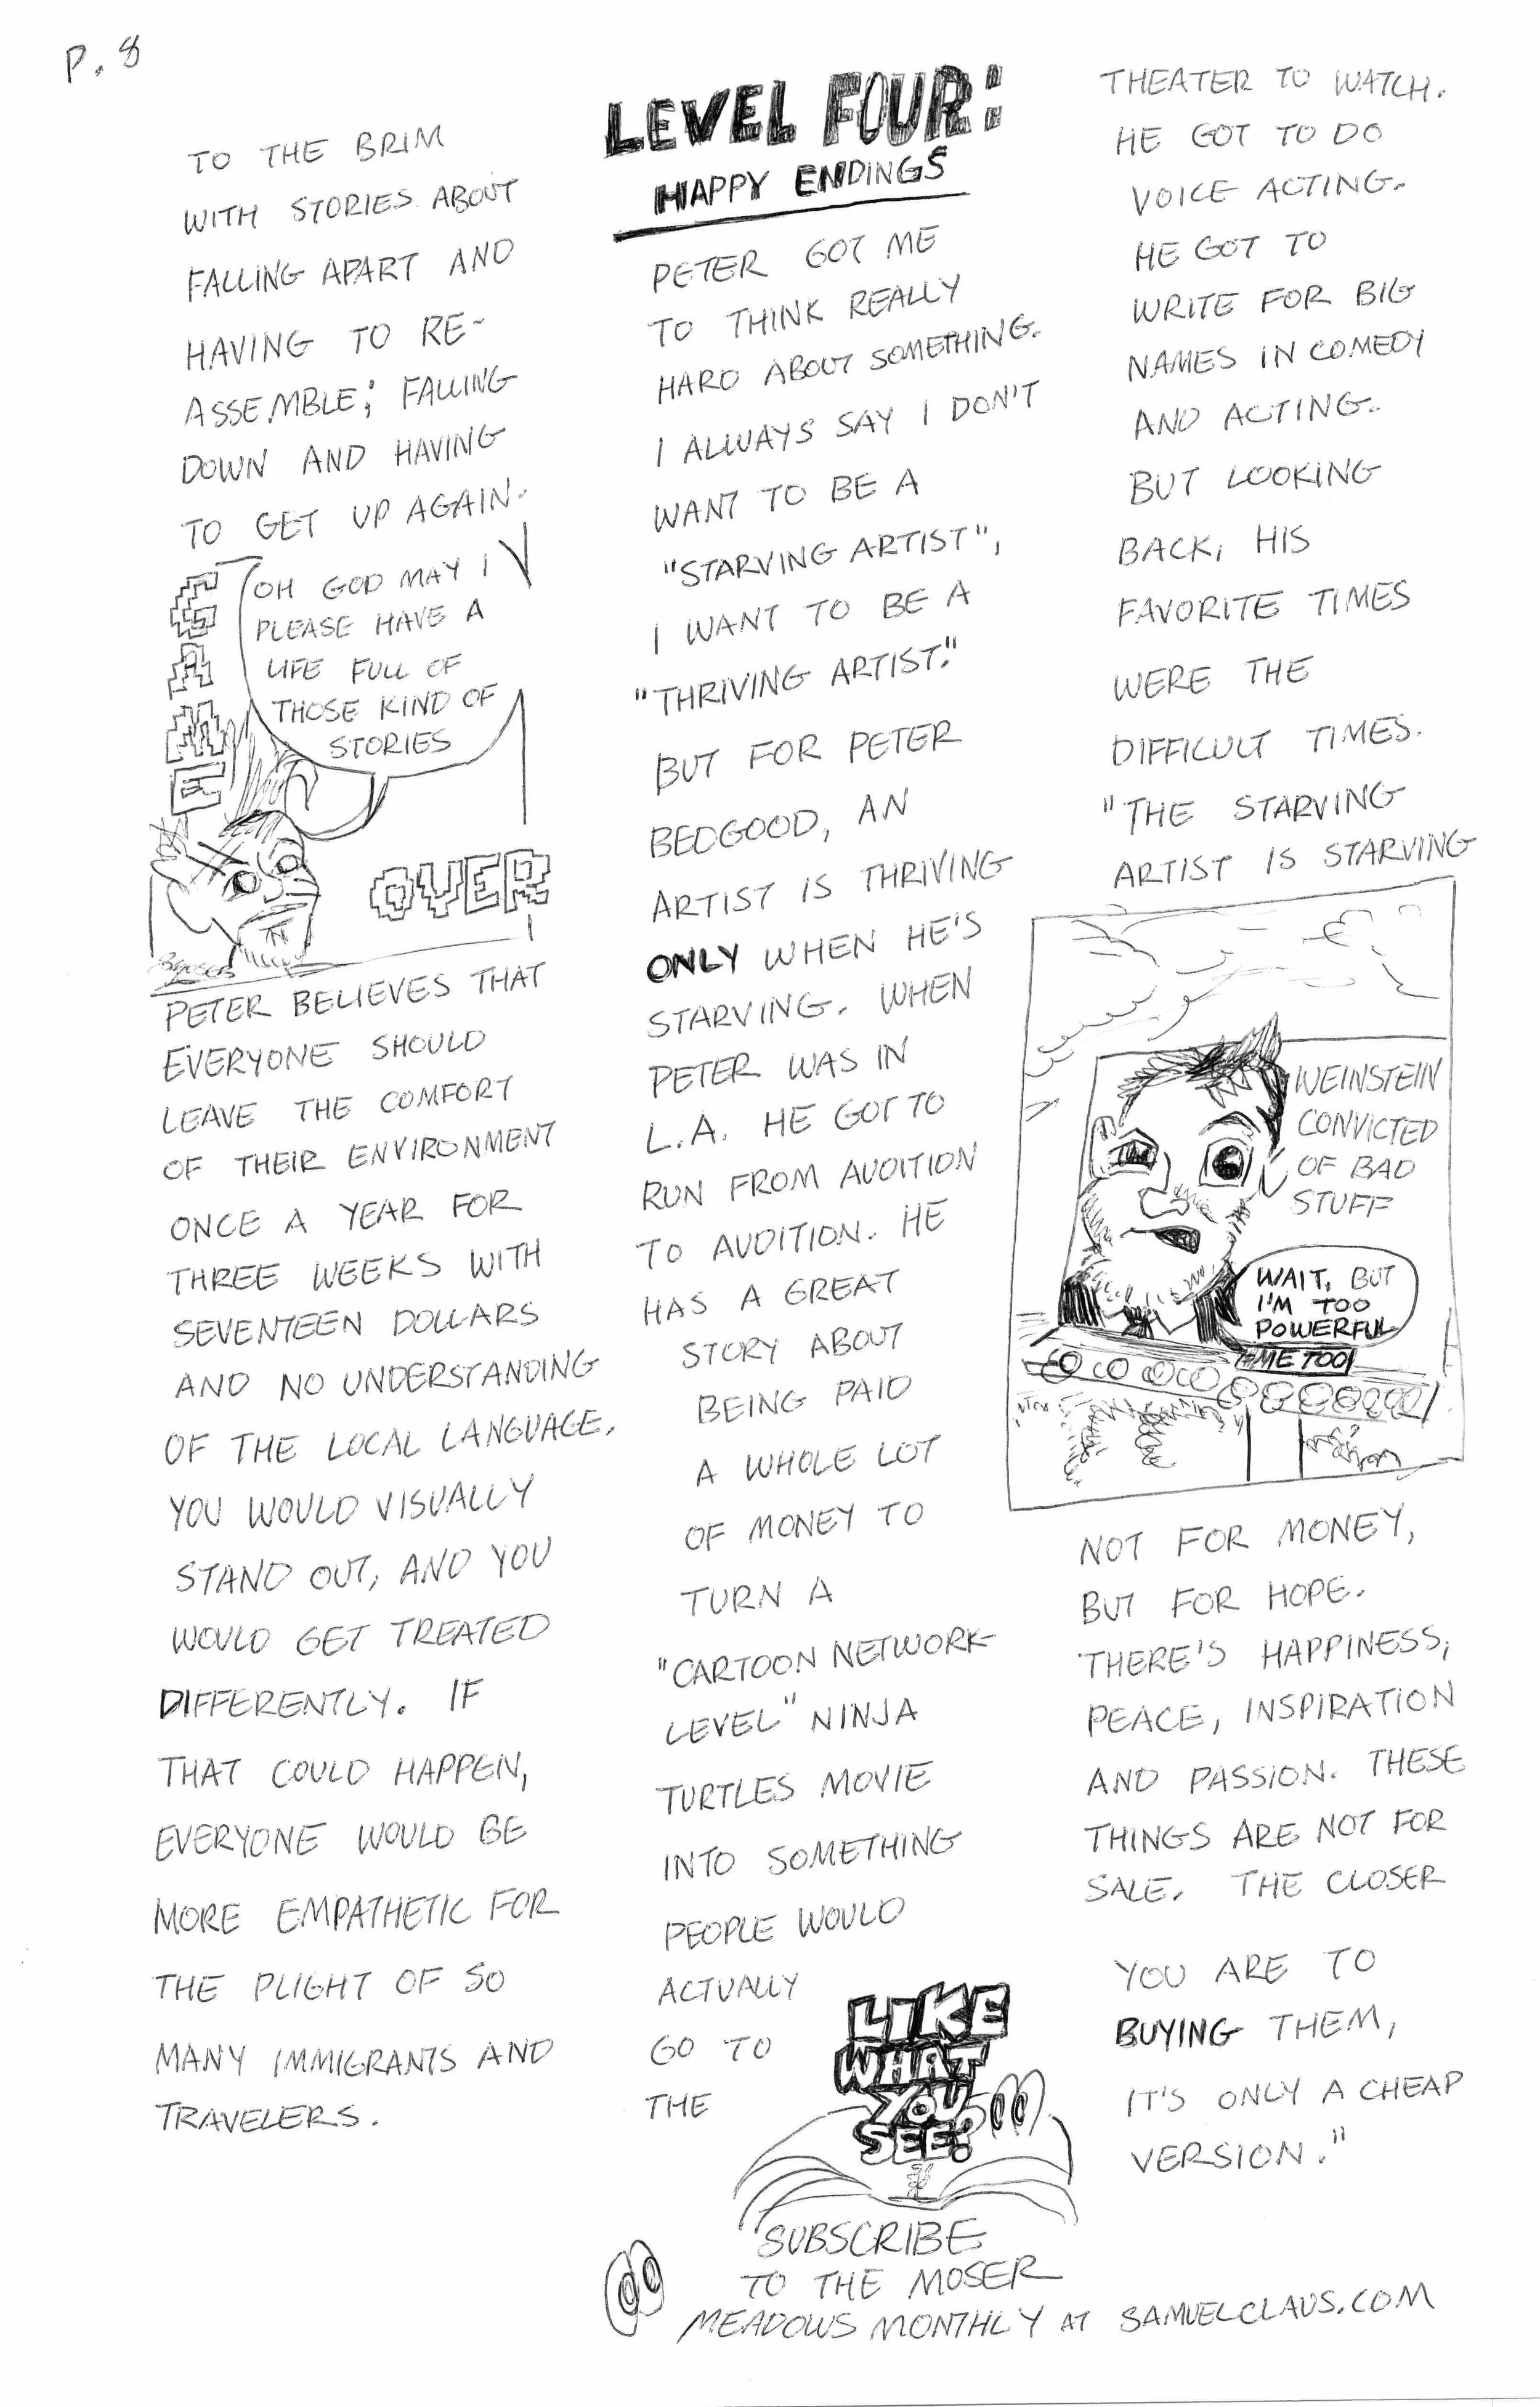 P. 8
TO THE BRIM
WITH STORIES ABOUT
FALLING APART AND
HAVING TO RE-
ASSEMBLE; FALLING
DOWN AND HAVING
TO GET UP AGAIN.
OH GOD MAY I
PLEASE HAVE A
LIFE FULL OF
THOSE KIND OF
STORIES
GAME
OVER
PETER BELIEVES THAT
EVERYONE SHOULD
LEAVE THE COMFORT
OF THEIR ENVIRONMENT
ONCE A YEAR FOR
THREE WEEKS WITH
SEVENTEEN DOLLARS
AND NO UNDERSTANDING
OF THE LOCAL LANGUAGE.
YOU WOULD VISUALLY
STAND OUT, AND YOU
WOULD GET TREATED
DIFFERENTLY. IF
THAT COULD HAPPEN,
EVERYONE WOULD BE
MORE EMPATHETIC FOR
THE PLIGHT OF SO
MANY IMMIGRANTS AND
TRAVELERS.
LEVEL FOUR:
HAPPY ENDINGS
PETER GOT ME
TO THINK REALLY
HARD ABOUT SOMETHING.
I ALWAYS SAY I DON'T
WANT TO BE A
"STARVING ARTIST",
I WANT TO BE A
"THRIVING ARTIST."
BUT FOR PETER
BEDGOOD, AN
ARTIST IS THRIVING
ONLY WHEN HE'S
STARVING. WHEN
PETER WAS IN
L.A. HE GOT TO
RUN FROM AUDITION
TO AUDITION. HE
HAS A GREAT
STORY ABOUT
BEING PAID
A WHOLE LOT
OF MONEY TO
TURN A
"CARTOON NETWORK-
LEVEL" NINJA
TURTLES MOVIE
INTO SOMETHING
PEOPLE WOULD
ACTUALLY
GO TO
THE
THEATER TO WATCH.
HE GOT TO DO
VOICE ACTING.
HE GOT TO
WRITE FOR BIG
NAMES IN COMEDY
AND ACTING.
BUT LOOKING
BACK, HIS
FAVORITE TIMES
WERE THE
DIFFICULT TIMES.
"THE STARVING
ARTIST IS STARVING
WEINSTEIN
CONVICTED
OF BAD
STUFF
WAIT, BUT
I'M TOO
POWERFUL
#METOO
NOT FOR MONEY,
BUT FOR HOPE.
THERE'S HAPPINESS,
PEACE, INSPIRATION
AND PASSION. THESE
THINGS ARE NOT FOR
SALE. THE CLOSER
YOU ARE TO
BUYING THEM,
IT'S ONLY A CHEAP
VERSION."
LIKE
WHAT
YOU
SEE?
SUBSCRIBE
TO THE MOSER
MEADOWS MONTHLY AT SAMUELCLAUS.COM